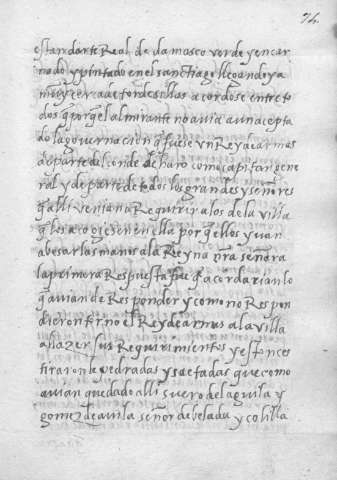 74
estandarte Real de damasco verde y encar
nado y pintado en el sanctiago llegando ya
muy cerca de tordesillas acordose entre to
dos q̃ porq̃ el almirante no avia aun acepta
do la governaçion q̃ fuese un Rey de armas
de parte del conde de haro como capitan gene
ral y de parte de todos los grandes y señores
q̃ alli venian a Requirir a los de la villa
q̃ los acogiesen en ella porq̃ ellos yvan
a besar las manos a la Reyna nr̃a señora
la primera Respuesta fue q̃ acordarian lo
q̃ avian de Responder y como no Respon
dieron torno el Rey de armas a la villa
a hazer sus Requirimientos y estonces
tiraronle pedradas y saetadas que como
avian quedado alli suero del aguila y
gomez de avila señor de beladu y cobilla